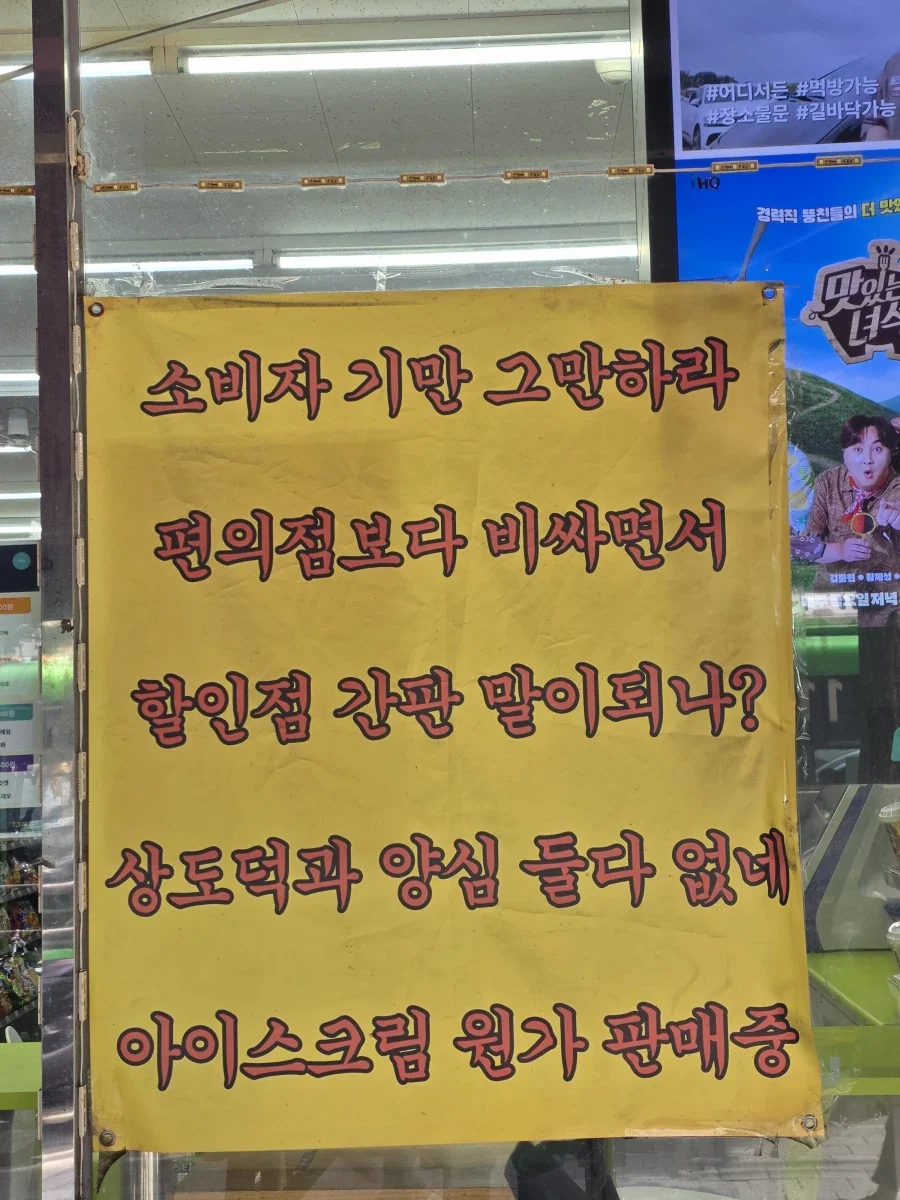 #어디서든 #먹방가능
#장소불문 #길바닥가능
HQ
경력직 뚱친들의 더
맛있는
녀석
소비자 기만 그만하라
편의점보다 비싸면서
할인점 간판 말이되나?
상도덕과 양심 둘다 없네
아이스크림 원가 판매중